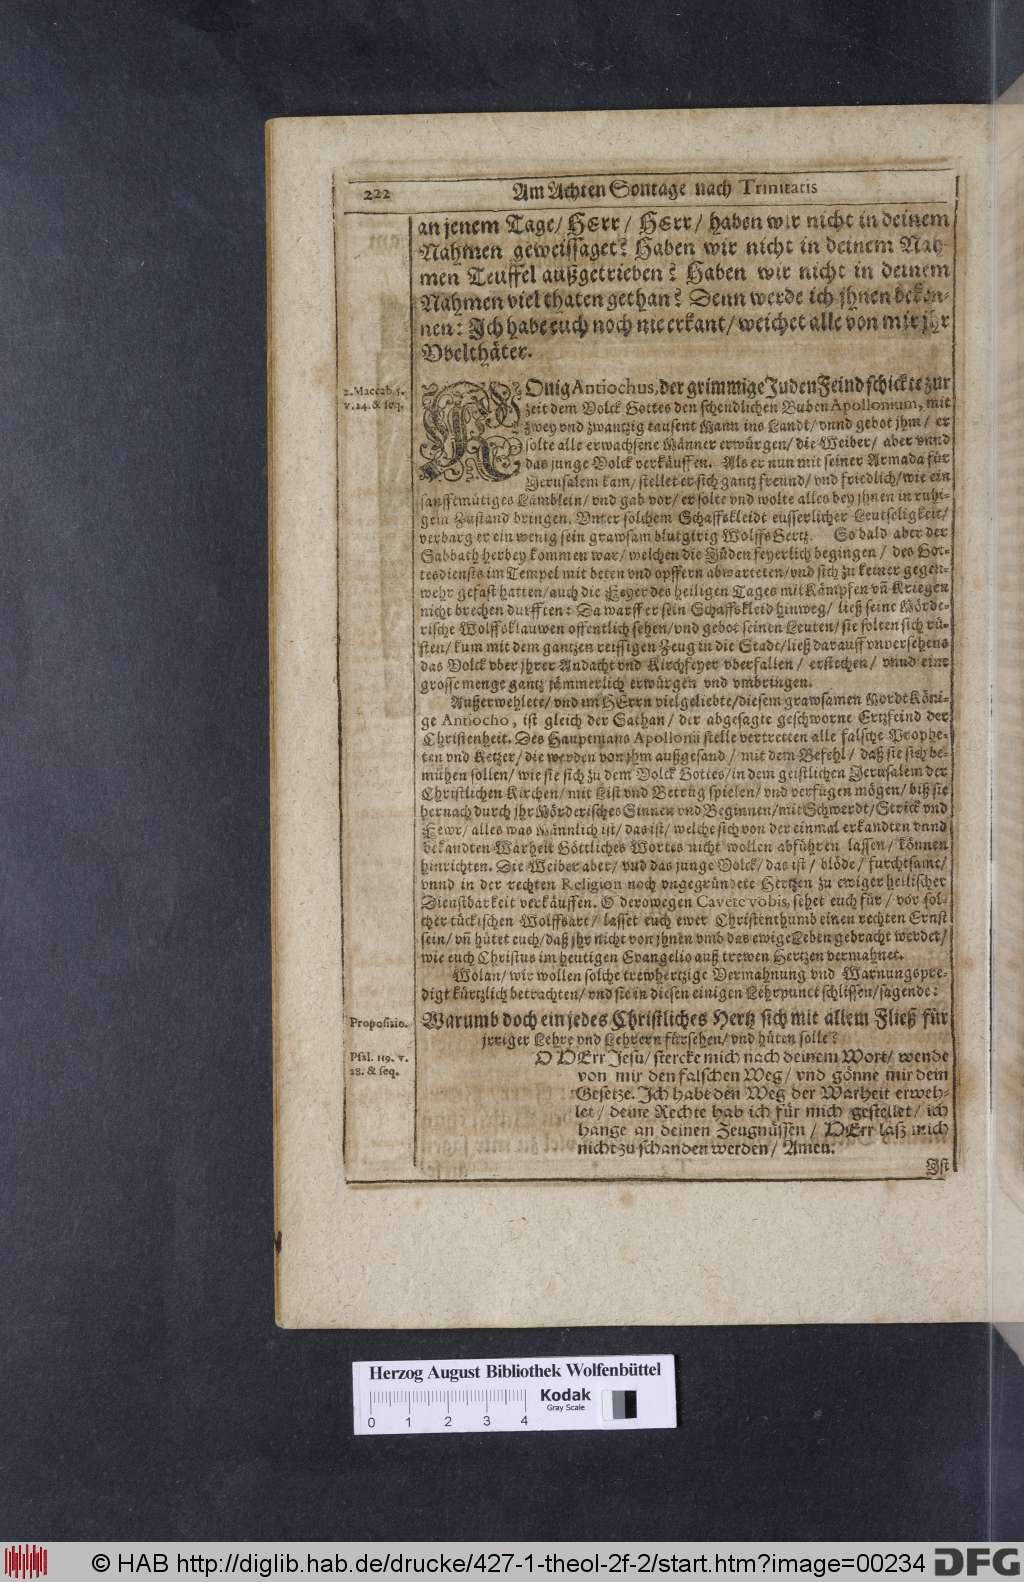 222
Am Achten Sontage nach Trinitatis
an jenem Tage/ HErr/ HErr/ haben wir nicht in deinem
Nahmen geweissaget? Haben wir nicht in deinem Nah-
men Teuffel außgetrieben? Haben wir nicht in deinem
Nahmen viel thaten gethan? Denn werde ich jhnen beken-
nen: Jch habe euch noch nie erkant/ weichet alle von mir jhr
Vbelthäter.
2. Maccab. 5.
v. 24. & seq.
KOnig Antiochus, der grimmige Juden Feind schickte zur
zeit dem Volck Gottes den schendlichen Buben Apollonium, mit
zwey vnd zwantzig tausent Mann ins Landt/ vnnd gebot jhm/ er
solte alle erwachsene Männer erwürgen/ die Weiber/ aber vnnd
das junge Volck verkäuffen. Als er nun mit seiner Armada für
Jerusalem kam/ stellet er sich gantz freund/ vnd friedlich/ wie ein
sanfftmütiges Lämblein/ vnd gab vor/ er solte vnd wolte alles bey jhnen in ruhi-
gem Zustand bringen. Vnter solchem Schaffskleidt eusserlicher Leutseligkeit/
verbarg er ein wenig sein grawsam blutgirig Wolffs Hertz. So bald aber der
Sabbath herbey kommen war/ welchen die Jüden feyerlich begingen/ des Got-
tesdiensts im Tempel mit beten vnd opffern abwarteten/ vnd sich zu keiner gegen-
wehr gefast hatten/ auch die Feyer des heiligen Tages mit Kämpfen vñ Kriegen
nicht brechen durfften: Da warff er sein Schaffskleid hinweg/ ließ seine Mörde-
rische Wolffsklauwen offentlich sehen/ vnd gebot seinen Leuten/ sie solten sich rü-
sten/ kum mit dem gantzen reissigen Zeug in die Stadt/ ließ darauff vnversehens
das Volck vber jhrer Andacht vnd Kirchfeyer vberfallen/ erstechen/ vnnd eine
grosse menge gantz jämmerlich erwürgen vnd vmbringen.
Außerwehlete/ vnd im HErrn vielgeliebte/ diesem grawsamen Mordt Köni-
ge Antiocho, ist gleich der Sathan/ der abgesagte geschworne Ertzfeind der
Christenheit. Des Hauptmans Apollonii stelle vertretten alle falsche Prophe-
ten vnd Ketzer/ die werden von jhm außgesand/ mit dem Befehl/ daß sie sich be-
mühen sollen/ wie sie sich zu dem Volck Gottes/ in dem geistlichen Jerusalem der
Christlichen Kirchen/ mit List vnd Betrug spielen/ vnd verfügen mögen/ biß sie
hernach durch jhr Mörderisches Sinnen vnd Beginnen/ mit Schwerdt/ Strick vnd
Fewr/ alles was Männlich ist/ das ist/ welche sich von der einmal erkandten vnnd
bekandten Warheit Göttliches Wortes nicht wollen abführen lassen/ können
hinrichten. Die Weiber aber/ vnd das junge Volck/ das ist/ blöde/ furchtsame/
vnnd in der rechten Religion noch vngegründete Hertzen zu ewiger hellischer
Dienstbarkeit verkäuffen. O derowegen Cavete vobis, sehet euch für/ vor sol-
cher tückischen Wolffsart/ lasset euch ewer Christenthumb einen rechten Ernst
sein/ vñ hütet euch/ daß jhr nicht von jhnen vmb das ewige Leben gebracht werdet/
wie euch Christus im heutigen Evangelio auß trewen Hertzen vermahnet.
Wolan/ wir wollen solche trewhertzige Vermahnung vnd Warnungspre-
digt kürtzlich betrachten/ vnd sie in diesen einigen Lehrpunct schlissen/ sagende:
Propositio.
Warumb doch ein jedes Christliches Hertz sich mit allem Fließ für
jrriger Lehre vnd Lehrern fürsehen/ vnd hüten solle?
Psal. 119. v.
28. & seq.
O HErr Jesu/ stercke mich nach deinem Wort/ wende
von mir den falschen Weg/ vnd gönne mir dein
Gesetze. Jch habe den Weg der Warheit erweh-
let/ deine Rechte hab ich für mich gestellet/ ich
hange an deinen Zeugnüssen/ HErr laß mich
nicht zu schanden werden/ Amen.
Jst
Herzog August Bibliothek Wolfenbüttel
0 1 2 3 4
Kodak
Gray Scale
© HAB http://diglib.hab.de/drucke/427-1-theol-2f-2/start.htm?image=00234
DFG